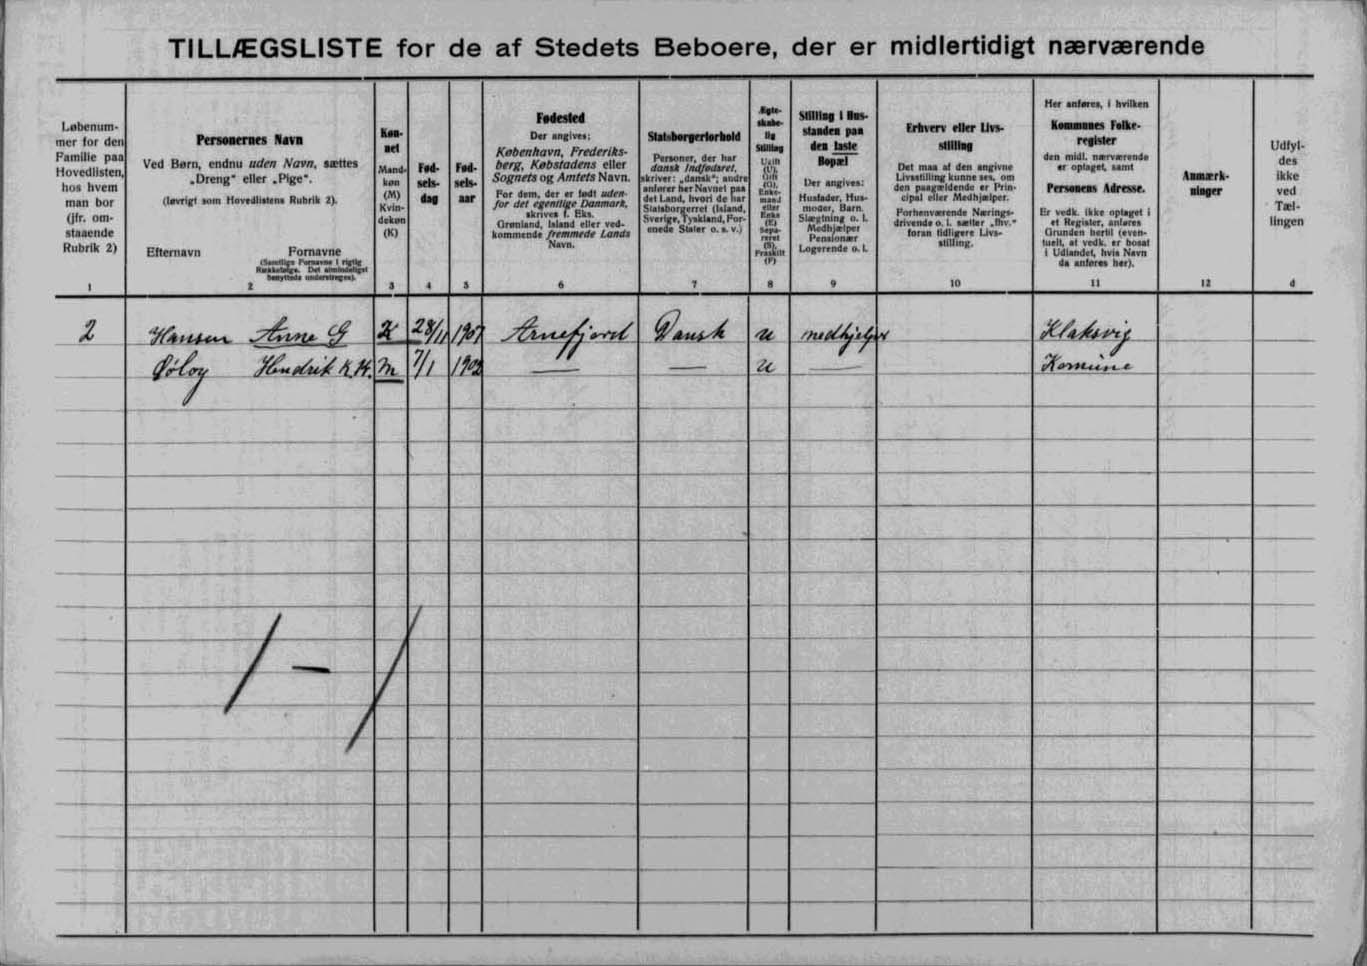 TILLÆGSLISTE for de af Stedets Beboere, der er midlertidigt nærværende
Løbenum-
mer for den
Familie paa
Hovedlisten,
hos hvem
man bor
(jfr. om-
staaende
Rubrik 2)
1
Personernes Navn
Ved Børn, endnu uden Navn, sættes
„Dreng“ eller „Pige“.
(Iøvrigt som Hovedlistens Rubrik 2).
Efternavn Fornavne
(Samtlige Fornavne i rigtig
Rækkefølge. Det almindeligst
benyttede understreges).
2
Køn-
net
Mand-
køn
(M)
Kvin-
dekøn
(K)
3
Fød-
sels-
dag
4
Fød-
sels-
aar
5
Fødested
Der angives:
København, Frederiks-
berg, Købstadens eller
Sognets og Amtets Navn.
For dem, der er født uden-
for det egentlige Danmark,
skrives f. Eks.
Grønland, Island eller ved-
kommende fremmede Lands
Navn.
6
Statsborgerforhold
Personer, der har
dansk Indfødsret,
skriver: „dansk“; andre
anfører her Navnet paa
det Land, hvori de har
Statsborgerret (Island,
Sverige, Tyskland, For-
enede Stater o. s. v.)
7
Ægte-
skabe-
lig
Stilling
Ugift
(U),
Gift
(G),
Enke-
mand
eller
Enke
(E)
Sepa-
reret
(S),
Fraskilt
(F)
8
Stilling i Hus-
standen paa
den faste
Bopæl
Der angives:
Husfader, Hus-
moder, Barn,
Slægtning o. l.
Medhjælper
Pensionær
Logerende o. l.
9
Erhverv eller Livs-
stilling
Det maa af den angivne
Livsstilling kunne ses, om
den paagældende er Prin-
cipal eller Medhjælper.
Forhenværende Nærings-
drivende o. l. sætter „fhv.“
foran tidligere Livs-
stilling.
10
Her anføres, i hvilken
Kommunes Folke-
register
den midl. nærværende
er optaget, samt
Personens Adresse.
Er vedk. ikke optaget i
et Register, anføres
Grunden hertil (even-
tuelt, at vedk. er bosat
i Udlandet, hvis Navn
da anføres her).
11
Anmærk-
ninger
12
Udfyl-
des
ikke
ved
Tæl-
lingen
d
2 Hansen Anne G K 28/11 1907 Arnefjord Dansk u medhjelper Klaksvig
Hendrik K. H. M 7/1 1902 — — u — Komúne